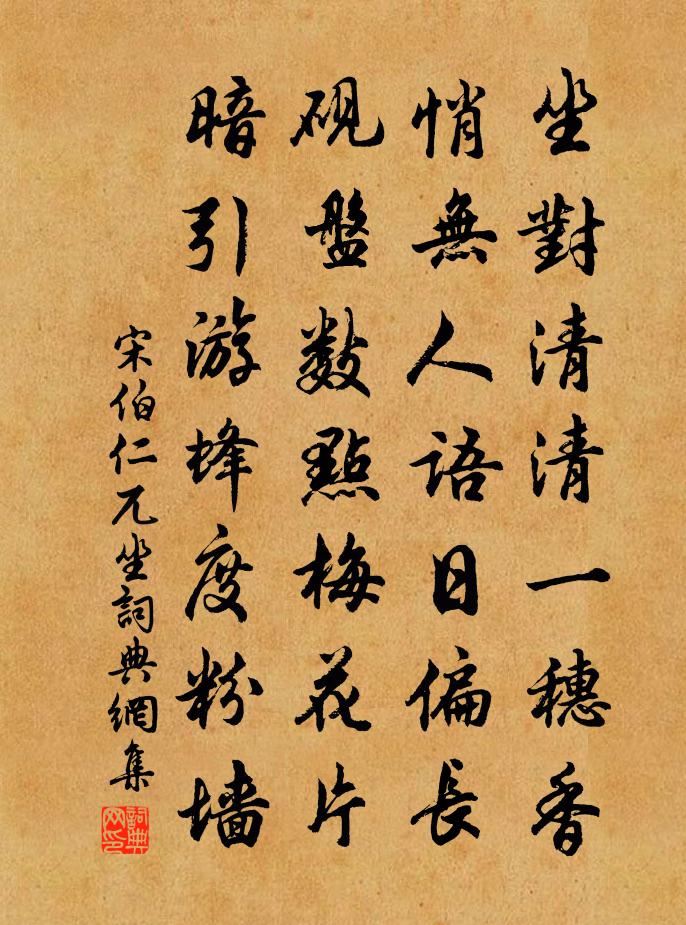 坐對清清一穗香
悄無人語日偏長
硯盤数點梅花片
暗引游蜂度粉墙
宋伯仁兀坐詞典網集
詞典
网印